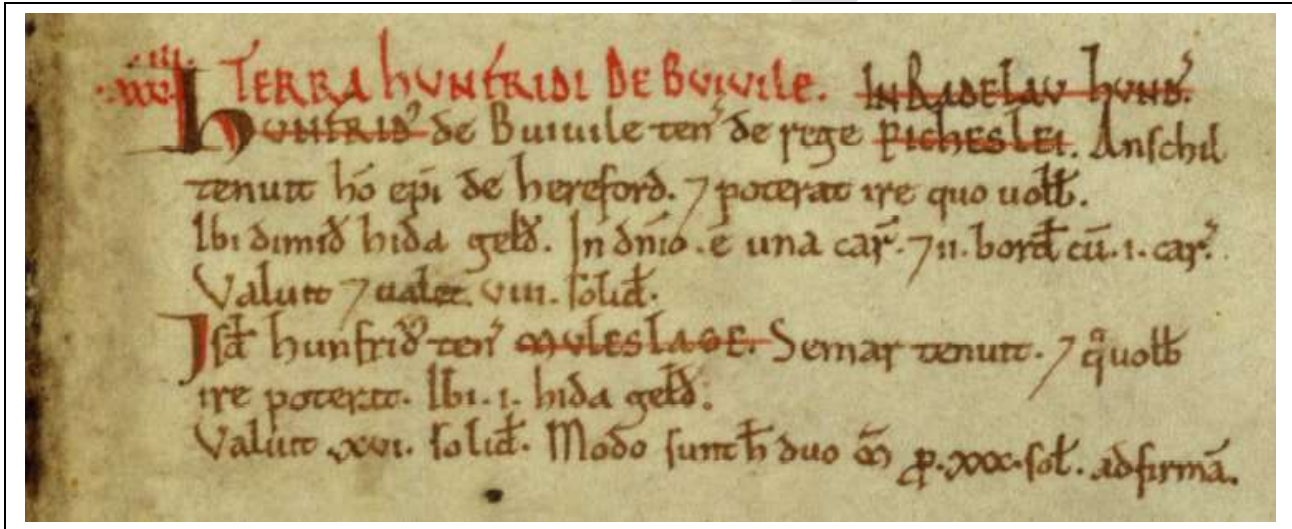 .XXXIIII. TERRA HUNFRIDI DE BUIVILE. IN RADELAU HUND'.
HUNFRID' de Buiuile ten' de rege PICHESLEI. Anschil
tenuit hō epi de hereford. ⁊ poterat ire quo uolb̄.
Ibi dimid̄ hida geld̄. In dn̄io .ē una car̄. ⁊ II. bord̄ cū. I. car̄.
Valuit ⁊ ualet. VIII. solid̄.
Isd̄ hunfrid' ten' MULESLAGE. Semar tenuit. ⁊ q̊ uolb̄
ire poterat. Ibi. I. hida geld̄.
Valuit .XVI. solid̄. Modo sunt h̄ duo M̄ p̱. XXX. sol̄. ad firmā.